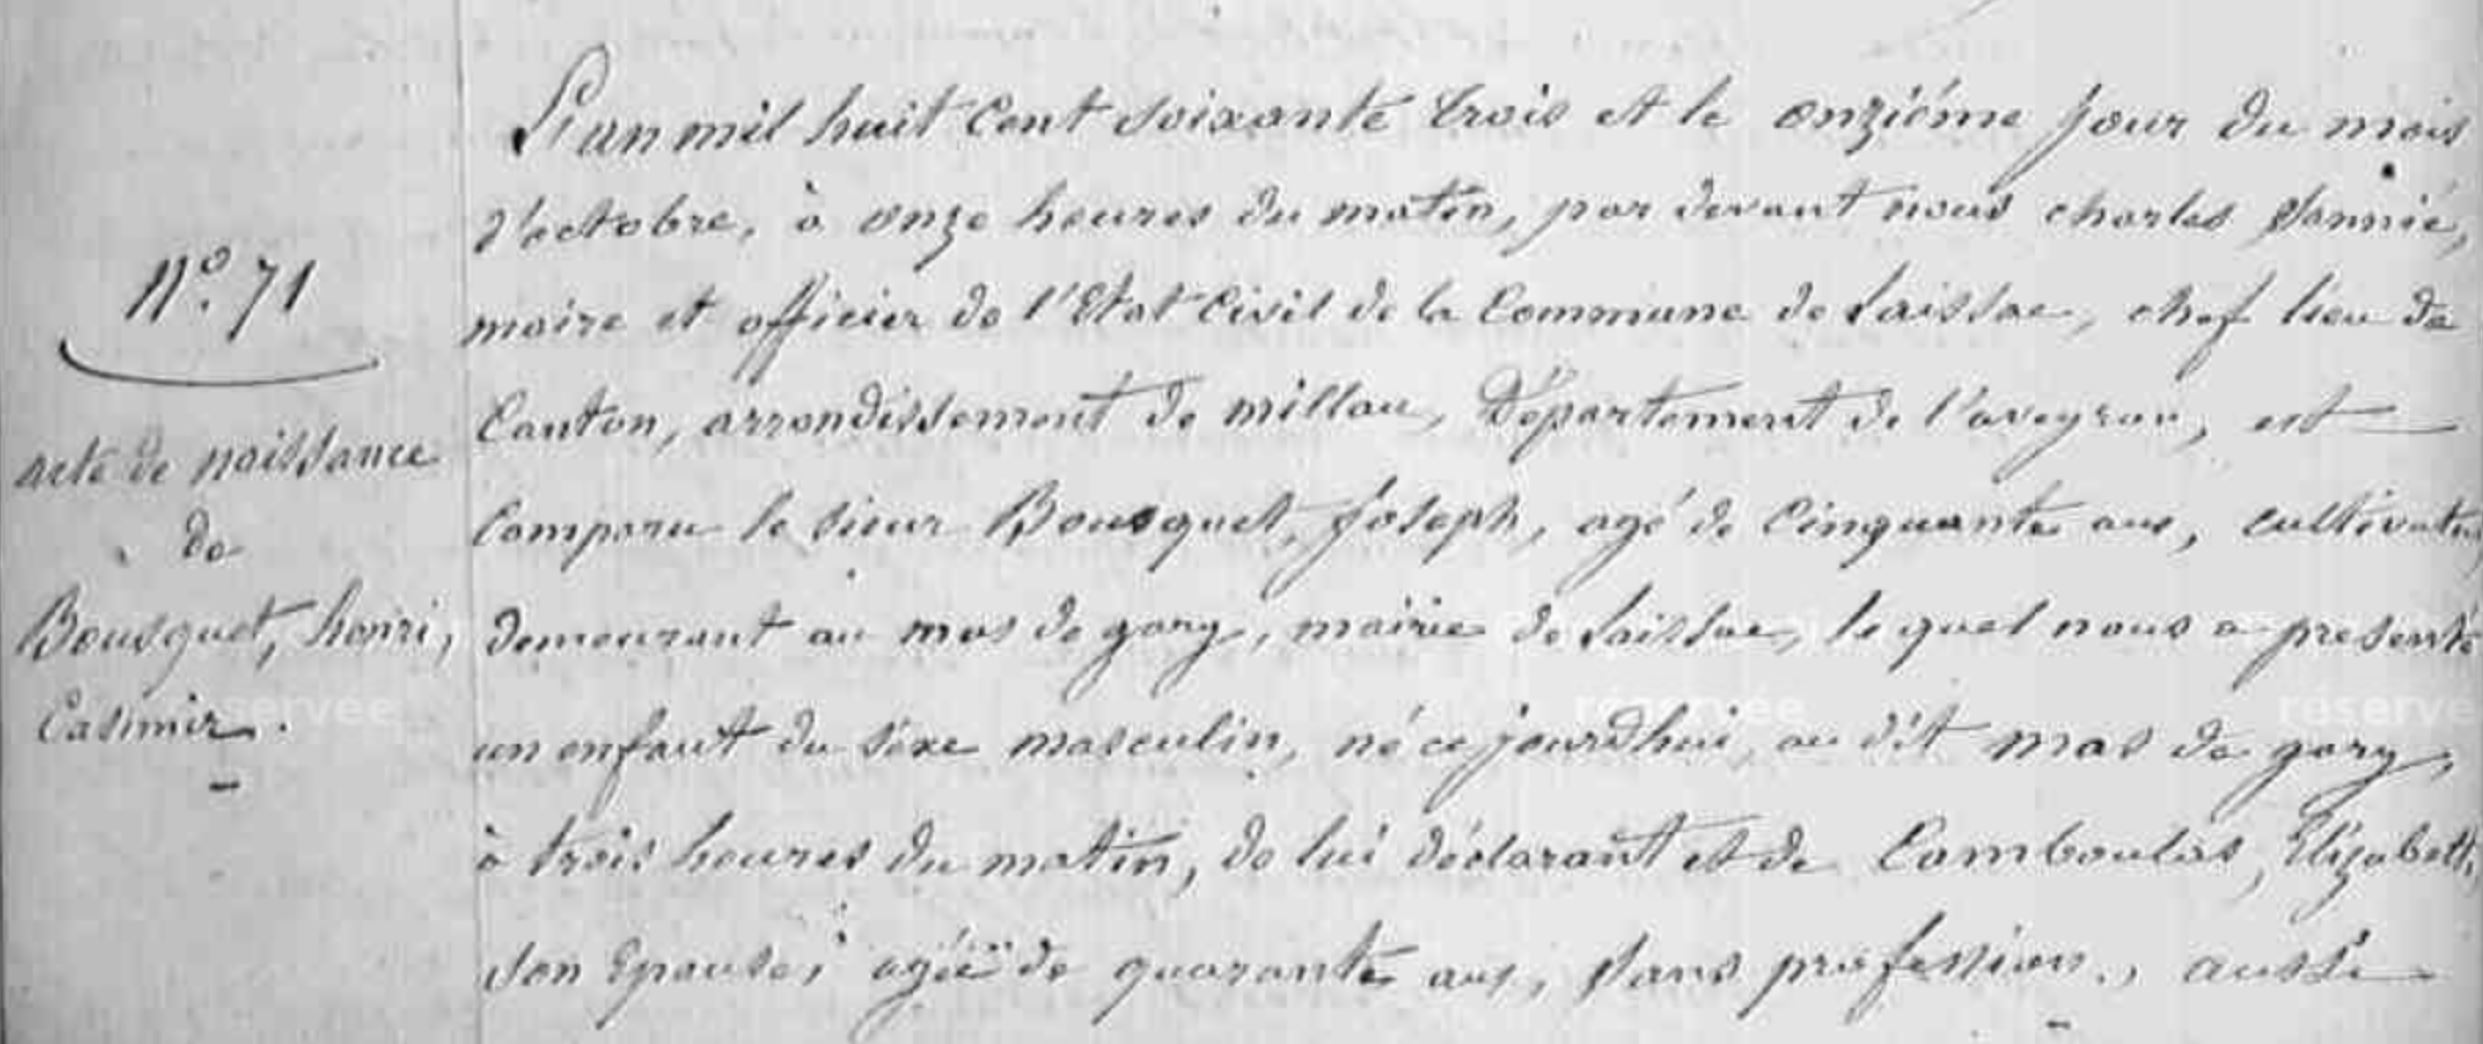 N.° 71
acte de naissance
de
Bousquet, henri,
Casimir.
L'an mil huit Cent soixante trois et le onziéme jour du mois
d'octobre, à onze heures du matin, par devant nous charles Sannié,
maire et officier de l'Etat Civil de la Commune de Laissac, chef lieu de
Canton, arrondissement de millau, Département de l'aveyron, est
Comparu le sieur Bousquet, Joseph, agé de Cinquante ans, cultivateur
demeurant au mas de gary, mairie de Laissac, le quel nous a presenté
un enfant du séxe masculin, né ce jourdhui, au dit mas de gary,
à trois heures du matin, de lui déclarant et de Camboulas, Elizabeth,
son Epouse, agée de quarante ans, sans profession, aussi
réservée
réservée
réservée